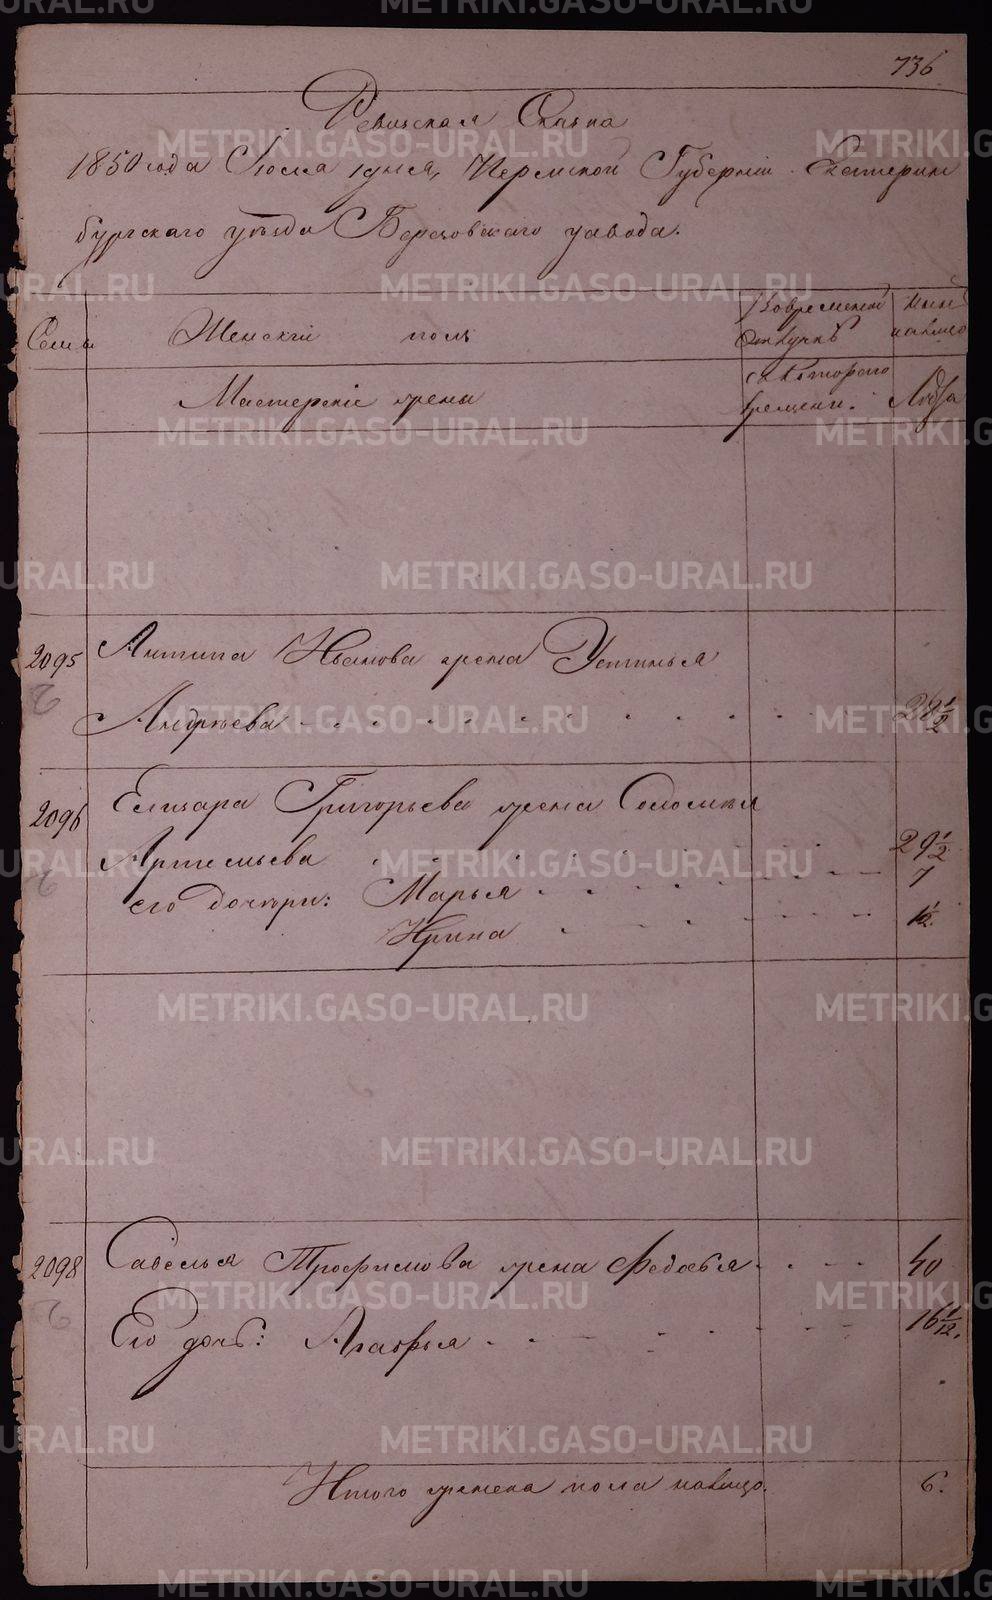 736
Ревизская Сказка
1850 года Июля 1 дня, Пермской Губернiи Екатерин
бургскаго уѣзда Березовскаго завода.
Семьи Женскiй полъ Во временной отлучкѣ Нынѣ на лицо
Мастерскiе жены съ котораго времени. Лѣта
2095 Антипа Иванова жена Устинья
Андрѣева 28½
2096 Елизара Григорьева жена Соломея
Артемьева 29½
его дочери: Марья 7
Ирина ½
2098 Савелья Трофимова жена Федосья 40
Его дочь: Агафья 16 1/12.
Итого женска пола налицо. 6.
METRIKI.GASO-URAL.RU